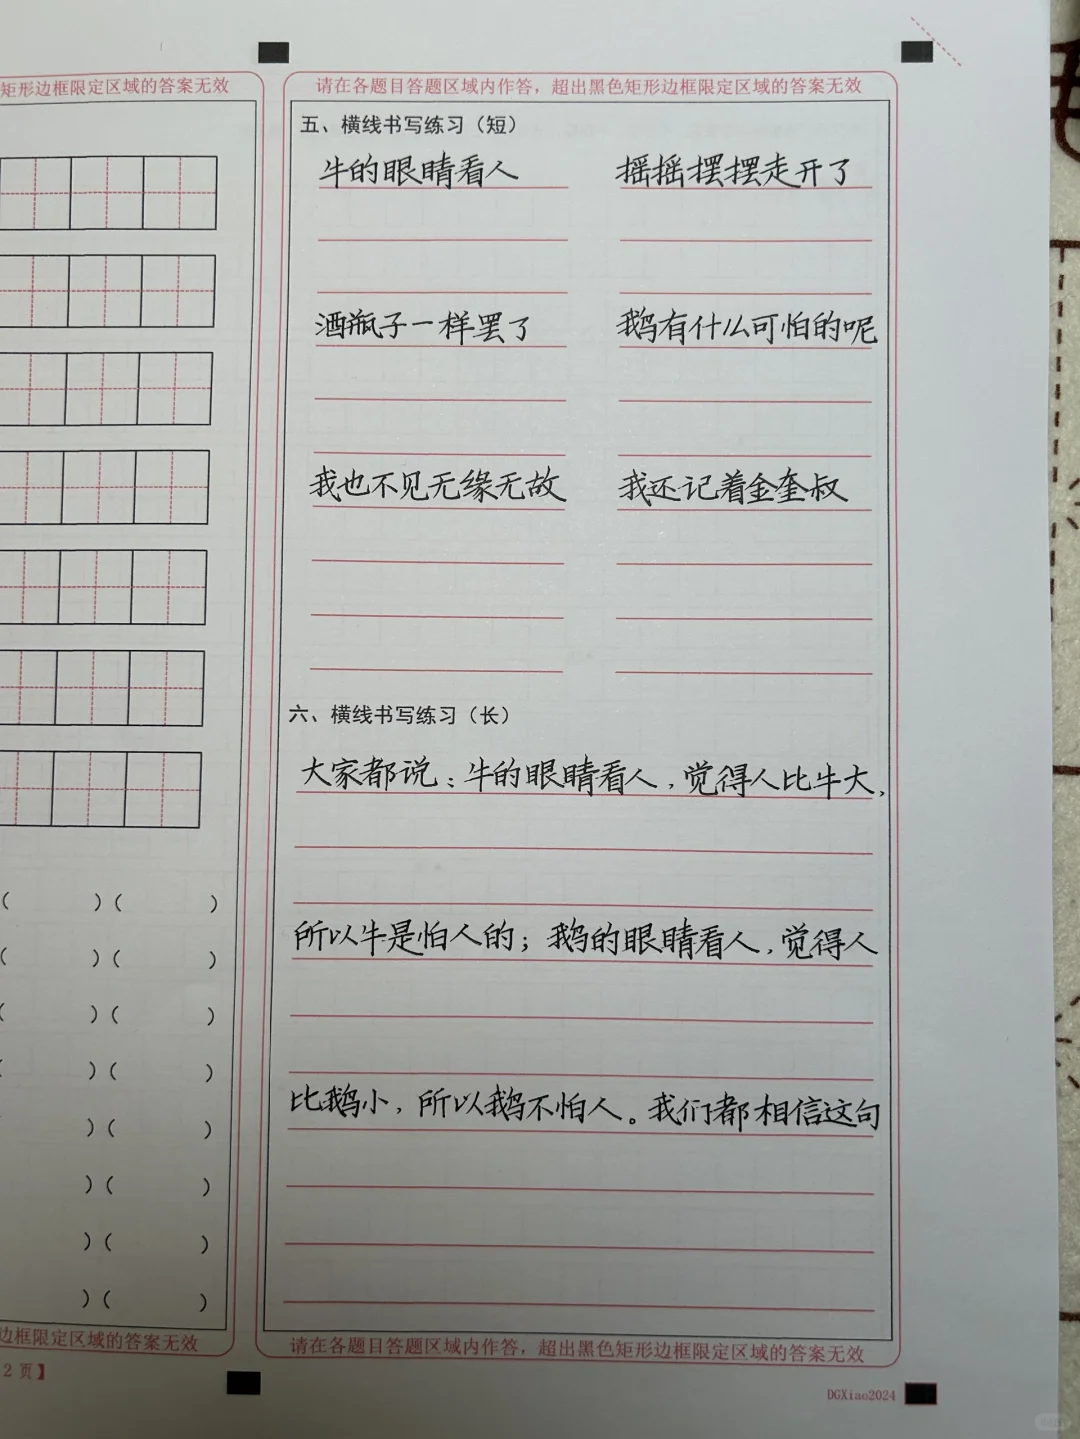 矩形边框限定区域的答案无效
请在各题目答题区域内作答，超出黑色矩形边框限定区域的答案无效
五、横线书写练习（短）
牛的眼睛看人 摇摇摆摆走开了
酒瓶子一样罢了 鹅有什么可怕的呢
我也不见无缘无故 我还记着金奎叔
六、横线书写练习（长）
大家都说：牛的眼睛看人，觉得人比牛大，
所以牛是怕人的；鹅的眼睛看人，觉得人
比鹅小，所以鹅不怕人。我们都相信这句
（ ）（ ）
（ ）（ ）
（ ）（ ）
（ ）（ ）
）（ ）
）（ ）
）（ ）
）（ ）
边框限定区域的答案无效
请在各题目答题区域内作答，超出黑色矩形边框限定区域的答案无效
2 页】
DGXiao2024